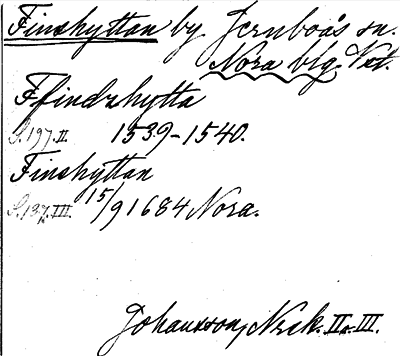 Finshyttan by Jernboås sn.
Nora blg. Vst.
Ffindzhytta
S. 197. II. 1539-1540.
Finshyttan
S. 137. III. 15/9 1684 Nora.
Johansson, Nzsk. II o. III.